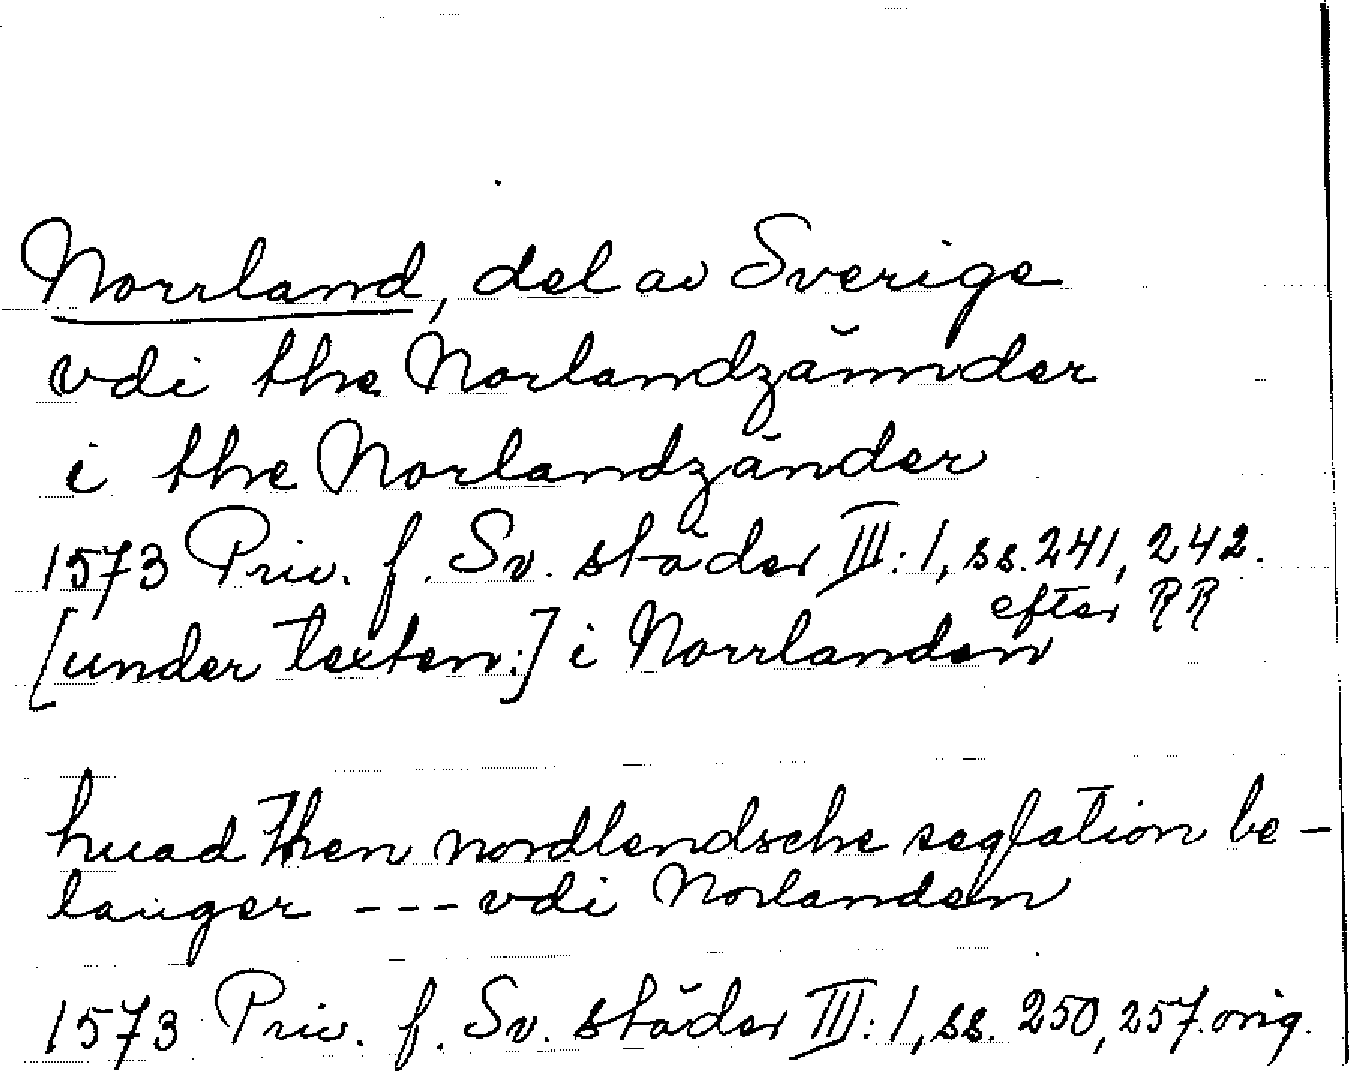 Norrland, del av Sverige
vdi the Norlandzänder
i the Norlandzänder
1573 Priv. f. Sv. städer III:1, ss. 241, 242.
efter RR
[under texten:] i Norrlanden
huad then nordlendsche seglation be-
langer --- vdi Norlanden
1573 Priv. f. Sv. städer III:1, ss. 250, 257. orig.